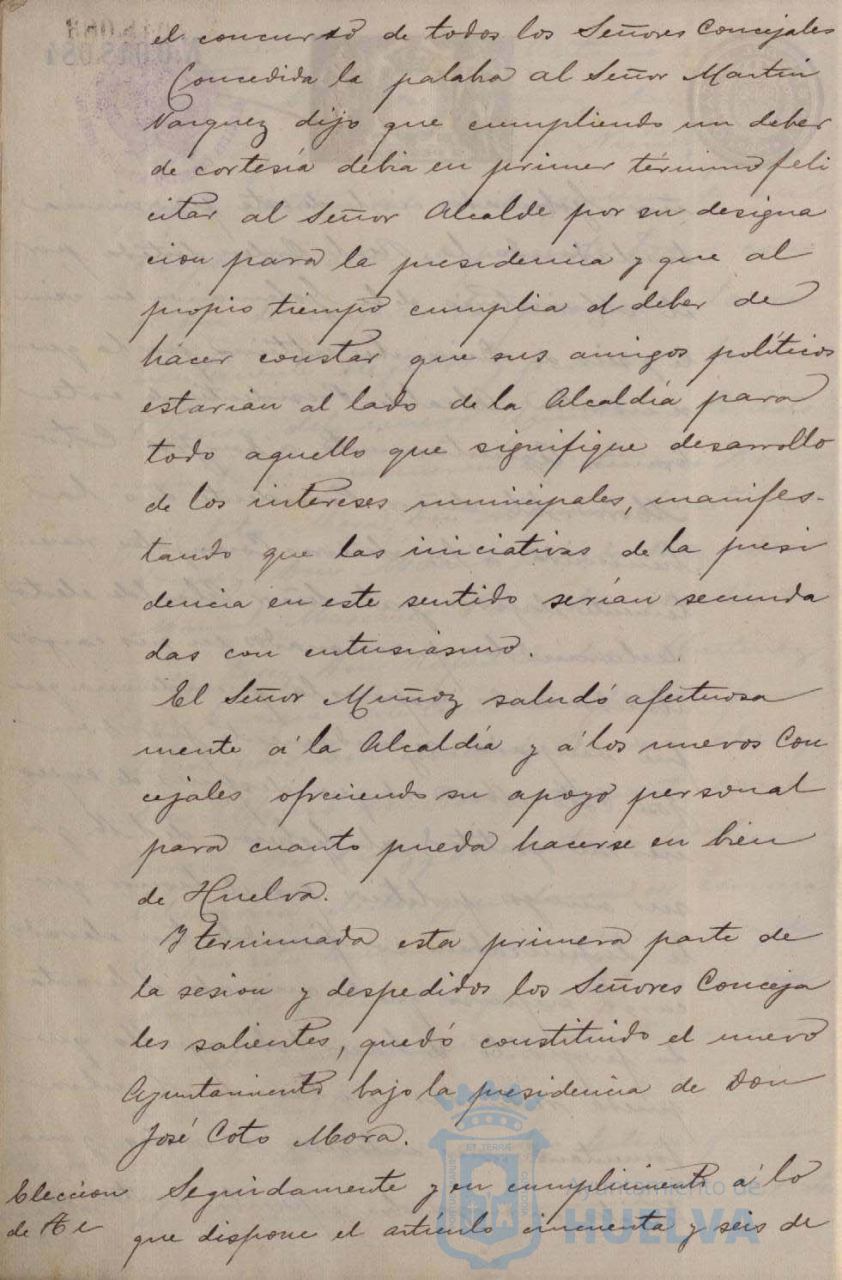 el concurso de todos los Señores Concejales
Concedida la palabra al Señor Martin
Vazquez dijo que cumpliendo un deber
de cortesía debia en primer término feli
citar al Señor Alcalde por su designa
cion para la presidencia y que al
propio tiempo cumplia el deber de
hacer constar que sus amigos políticos
estarian al lado de la Alcaldía para
todo aquello que signifique desarrollo
de los intereses municipales, manifes-
tando que las iniciativas de la presi
dencia en este sentido serían secunda
das con entusiasmo.
El Señor Muñoz saludó afectuosa
mente á la Alcaldía y á los nuevos Con
cejales ofreciendo su apoyo personal
para cuanto pueda hacerse en bien
de Huelva.
Y terminada esta primera parte de
la sesion y despedidos los Señores Conceja
les salientes, quedó constituido el nuevo
Ayuntamiento bajo la presidencia de Don
José Coto Mora.
Eleccion
de
Seguidamente y en cumplimiento á lo
que dispone el artículo cincuenta y seis de
Ayuntamiento de
HUELVA